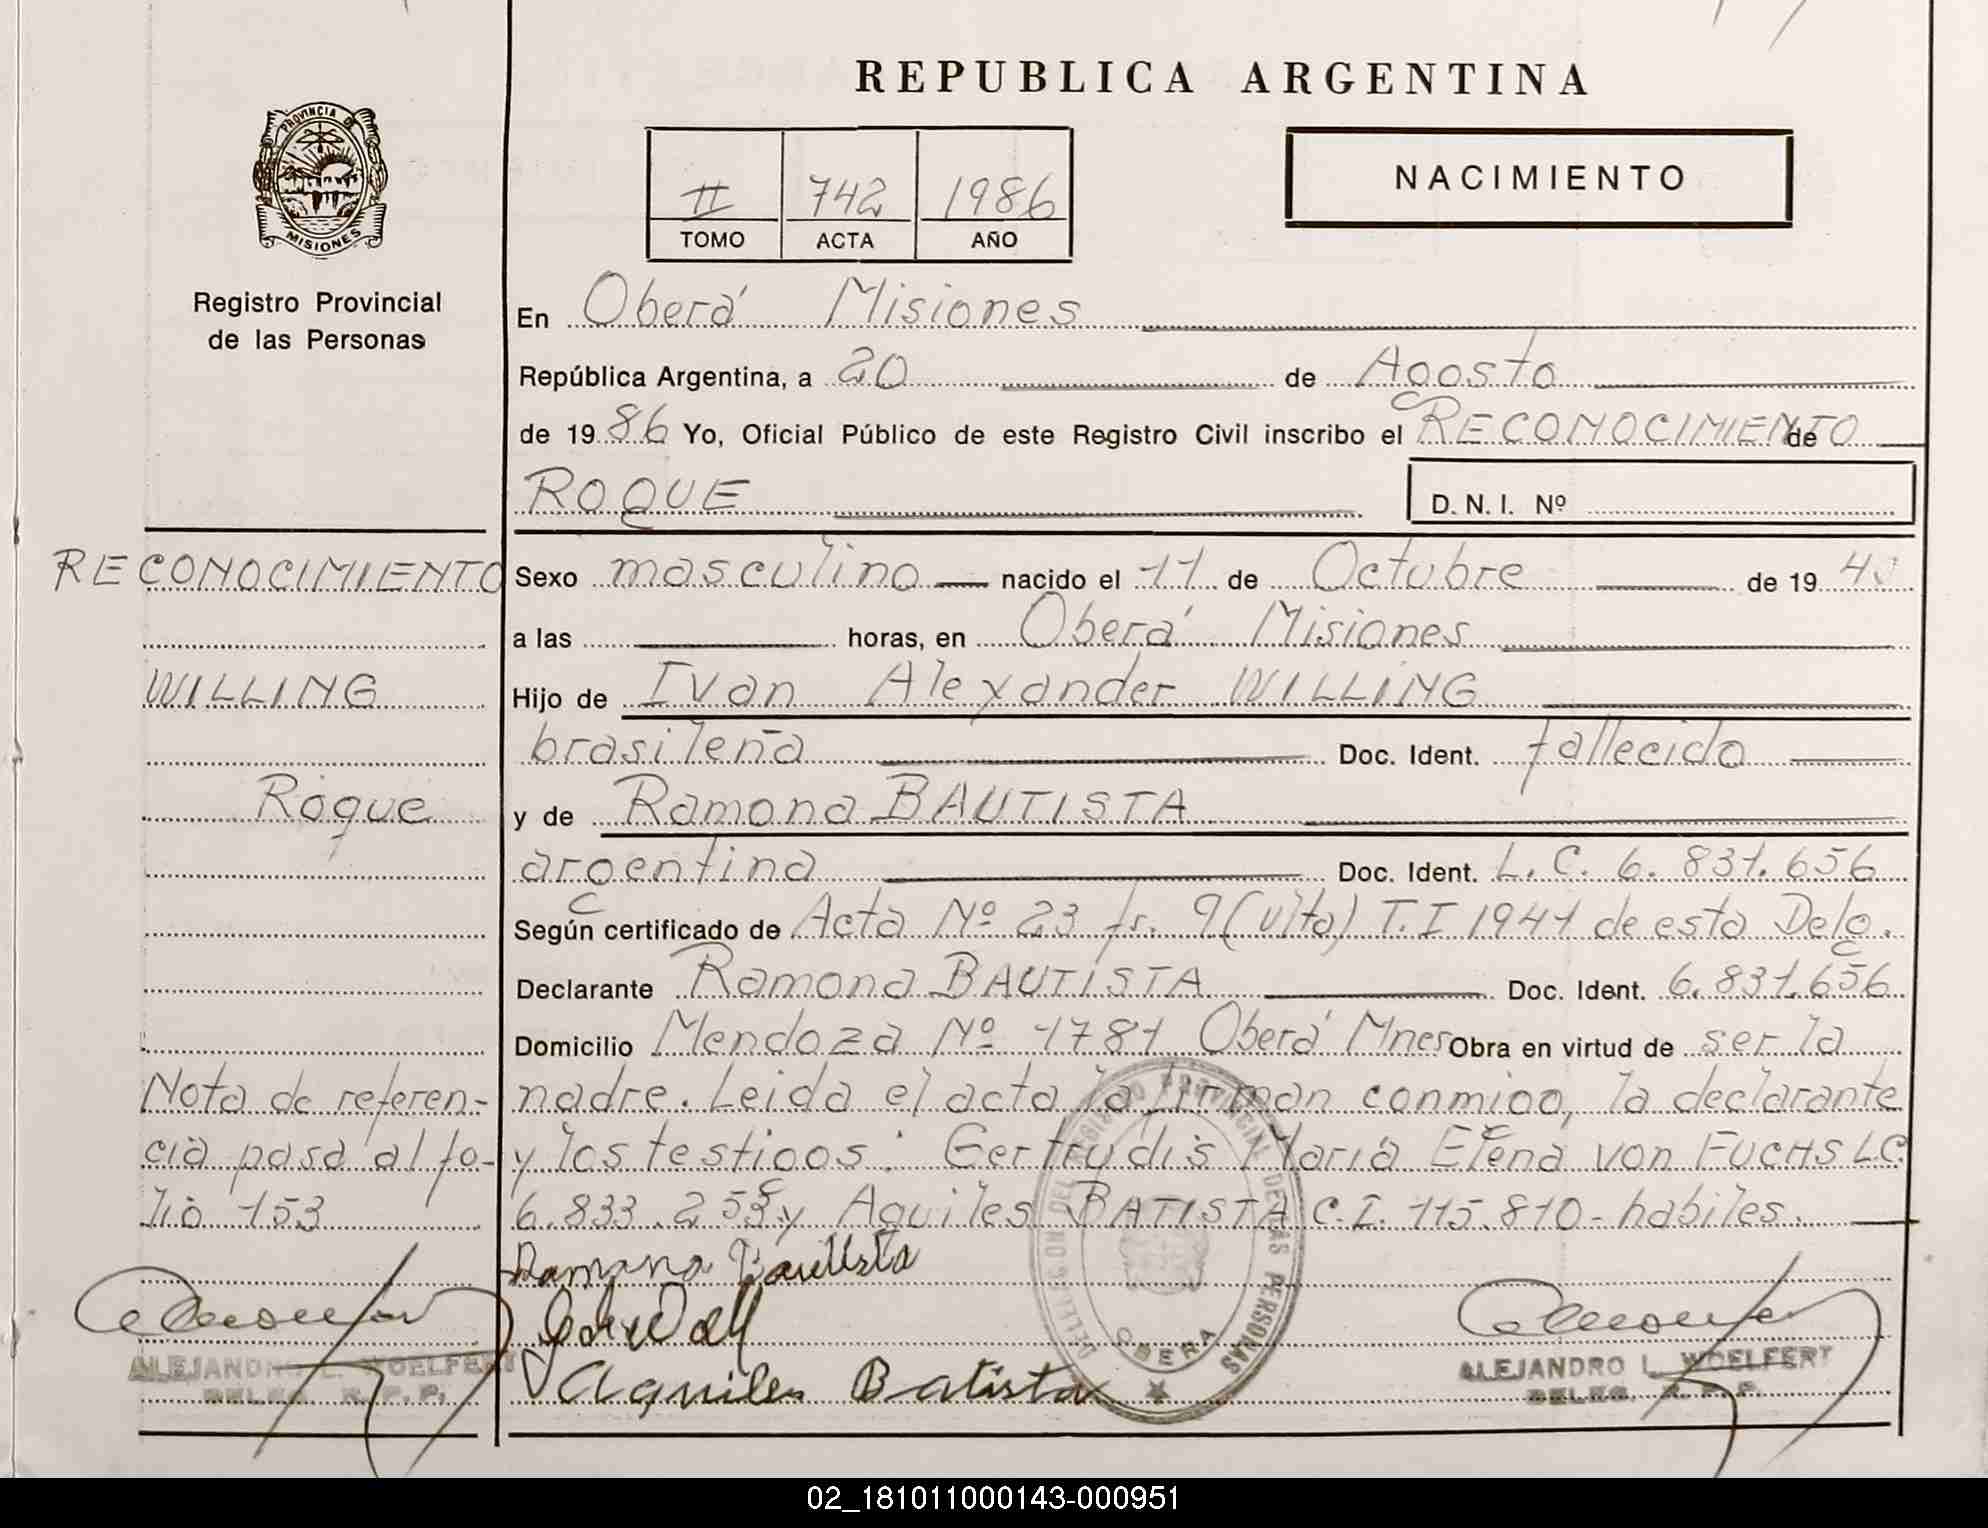 REPUBLICA ARGENTINA
PROVINCIA DE
MISIONES
II 742 1986
TOMO ACTA AÑO
NACIMIENTO
Registro Provincial
de las Personas
En Oberá Misiones
República Argentina, a 20 de Agosto
de 1986 Yo, Oficial Público de este Registro Civil inscribo el RECONOCIMIENTO de
ROQUE D. N. I. Nº
RECONOCIMIENTO
WILLING
Roque
Sexo masculino nacido el 11 de Octubre de 19
a las horas, en Oberá Misiones
Hijo de Ivan Alexander WILLING
brasileña Doc. Ident. fallecido
y de Ramona BAUTISTA
argentina Doc. Ident. L.C. 6.831.656
Según certificado de Acta Nº 23 fs. 9 (vlta) T.I 1941 de esta Deleg.
Declarante Ramona BAUTISTA Doc. Ident. 6.831.656
Domicilio Mendoza Nº 1781 Oberá Mnes Obra en virtud de ser la
madre. Leida el acta la firman conmigo, la declarante
y los testigos: Gertrudis Maria Elena von FUCHS LC.
6.833.253 y Aquiles BATISTA C.I. 115.810- habiles.
Nota de referen-
cia pasa al fo-
lio 153
Ramona Bautista
Aquiles Batista
DELEGACION DEL REGISTRO PROVINCIAL DE LAS PERSONAS
OBERA
ALEJANDRO L. WOELFERT
DELEG. R. P. P.
ALEJANDRO L. WOELFERT
DELEG. R. P. P.
02_181011000143-000951